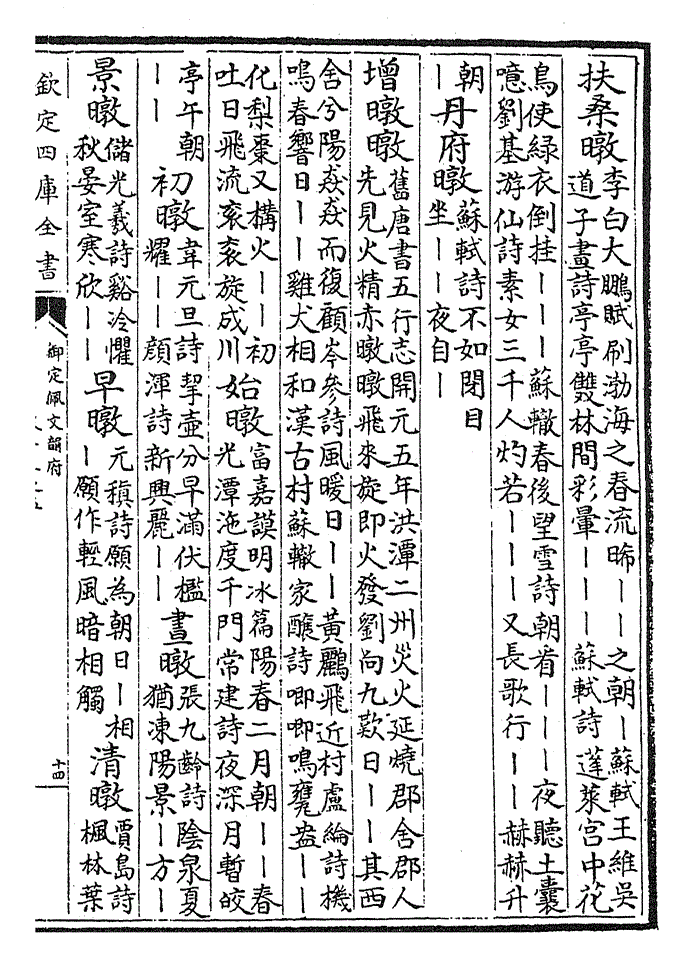 扶桑暾
李白大鵬賦刷渤海之春流晞｜｜之朝｜蘇軾王維吳
道子畫詩亭亭雙林間彩暈｜｜｜蘇軾詩蓬萊宮中花
鳥使綠衣倒挂｜｜｜蘇轍春後望雪詩朝看｜｜｜夜聽土囊
噫劉基游仙詩素女三千人灼若｜｜｜又長歌行｜｜赫赫升
朝
｜
丹府暾
蘇軾詩不如閉目
坐｜｜夜自｜
增暾暾
舊唐書五行志開元五年洪潭二州災火延燒郡舍郡人
先見火精赤暾暾飛來旋即火發劉向九歎日｜｜其西
舍兮陽焱焱而復顧岑參詩風暖日｜｜黃鸝飛近村盧綸詩機
鳴春響日｜｜雞犬相和漢古村蘇轍家釀詩唧唧鳴甕盎｜｜
化梨棗又構火｜｜初
吐日飛流滾滾旋成川
始暾
富嘉謨明冰篇陽春二月朝｜｜春
光潭沲度千門常建詩夜深月暫皎
亭午朝
｜｜
初暾
韋元旦詩挈壺分早滿伏檻
耀｜｜顏渾詩新興麗｜｜
晝暾
張九齡詩陰泉夏
猶凍陽景｜方｜
景暾
儲光羲詩谿冷懼
秋晏室寒欣｜｜
早暾
元稹詩願為朝日｜相
｜願作輕風暗相觸
清暾
賈島詩
楓林葉
欽定四庫全書
御定佩文韻府
十四